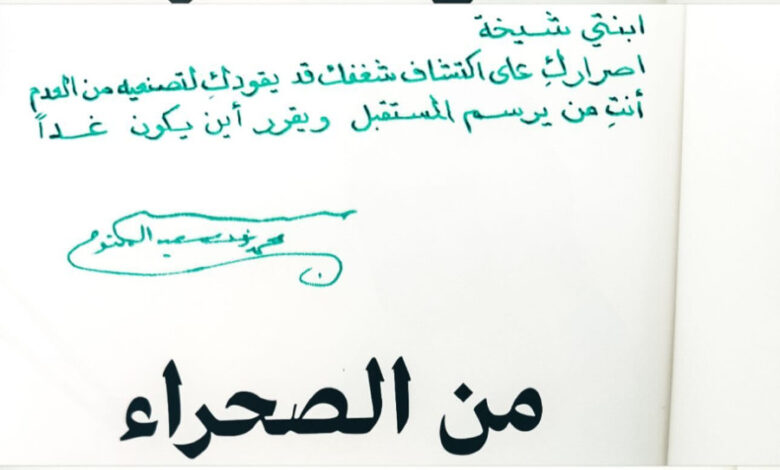 ابنتي شيخة
اصراركِ على اكتشاف شغفك قد يقودكِ لتصنعيه من العدم
أنتِ من يرسم المستقبل ويقرر أين يكون غداً
من الصحراء